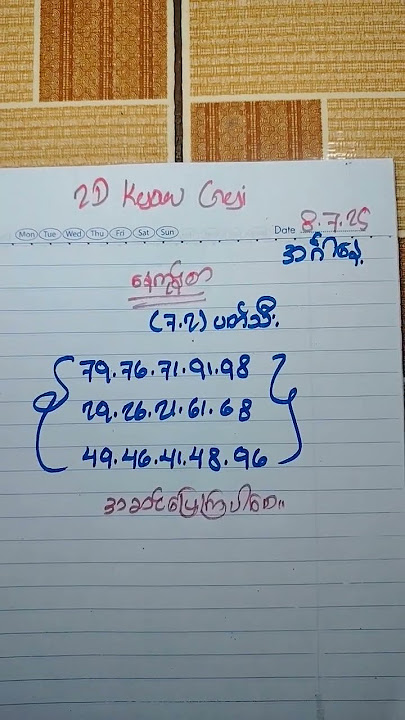 2D Kyaw Gyi
Mon Tue Wed Thu Fri Sat Sun Date 8.7.25
အင်္ဂါနေ့
နေ့ကျန်တာ
(7.2) ပတ်သီး
79.76.71.91.98
29.26.21.61.68
49.46.41.48.96
အဆင်ပြေကြပါစေ။